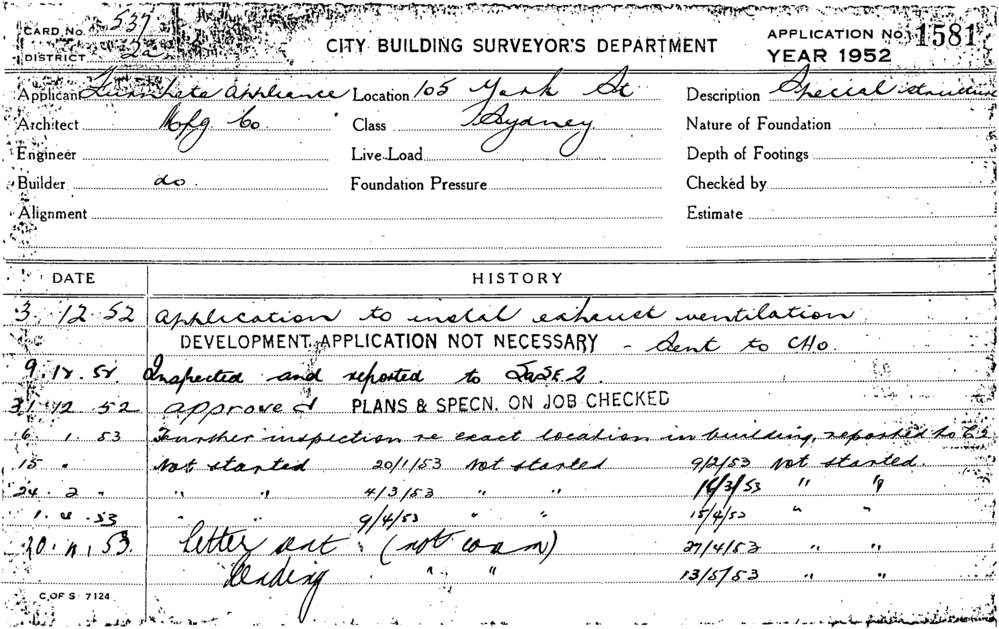 CARD No. 537
DISTRICT
CITY BUILDING SURVEYOR'S DEPARTMENT
APPLICATION No. 1581
YEAR 1952
Applicant Appliance Location 105 York St Description Special structure
Architect Mfg Co Class Sydney Nature of Foundation
Engineer Live Load Depth of Footings
Builder do. Foundation Pressure Checked by
Alignment Estimate
DATE HISTORY
3. 12. 52 Application to instal exhaust ventilation
DEVELOPMENT APPLICATION NOT NECESSARY - Sent to CHO.
9. 12. 52. Inspected and reported to
31. 12. 52 approved PLANS & SPECN. ON JOB CHECKED
6. 1. 53 Further inspection re exact location in building, reported to
15 " Not started 20/1/53 Not started 9/2/53 Not started.
24. 2 " " " 4/3/53 " " 16/3/53 " "
53 " " 9/4/53 " " 15/4/53 " "
53 letter sent (not com) 27/4/53 " "
" " 13/5/53 " "
C. OF S 7124